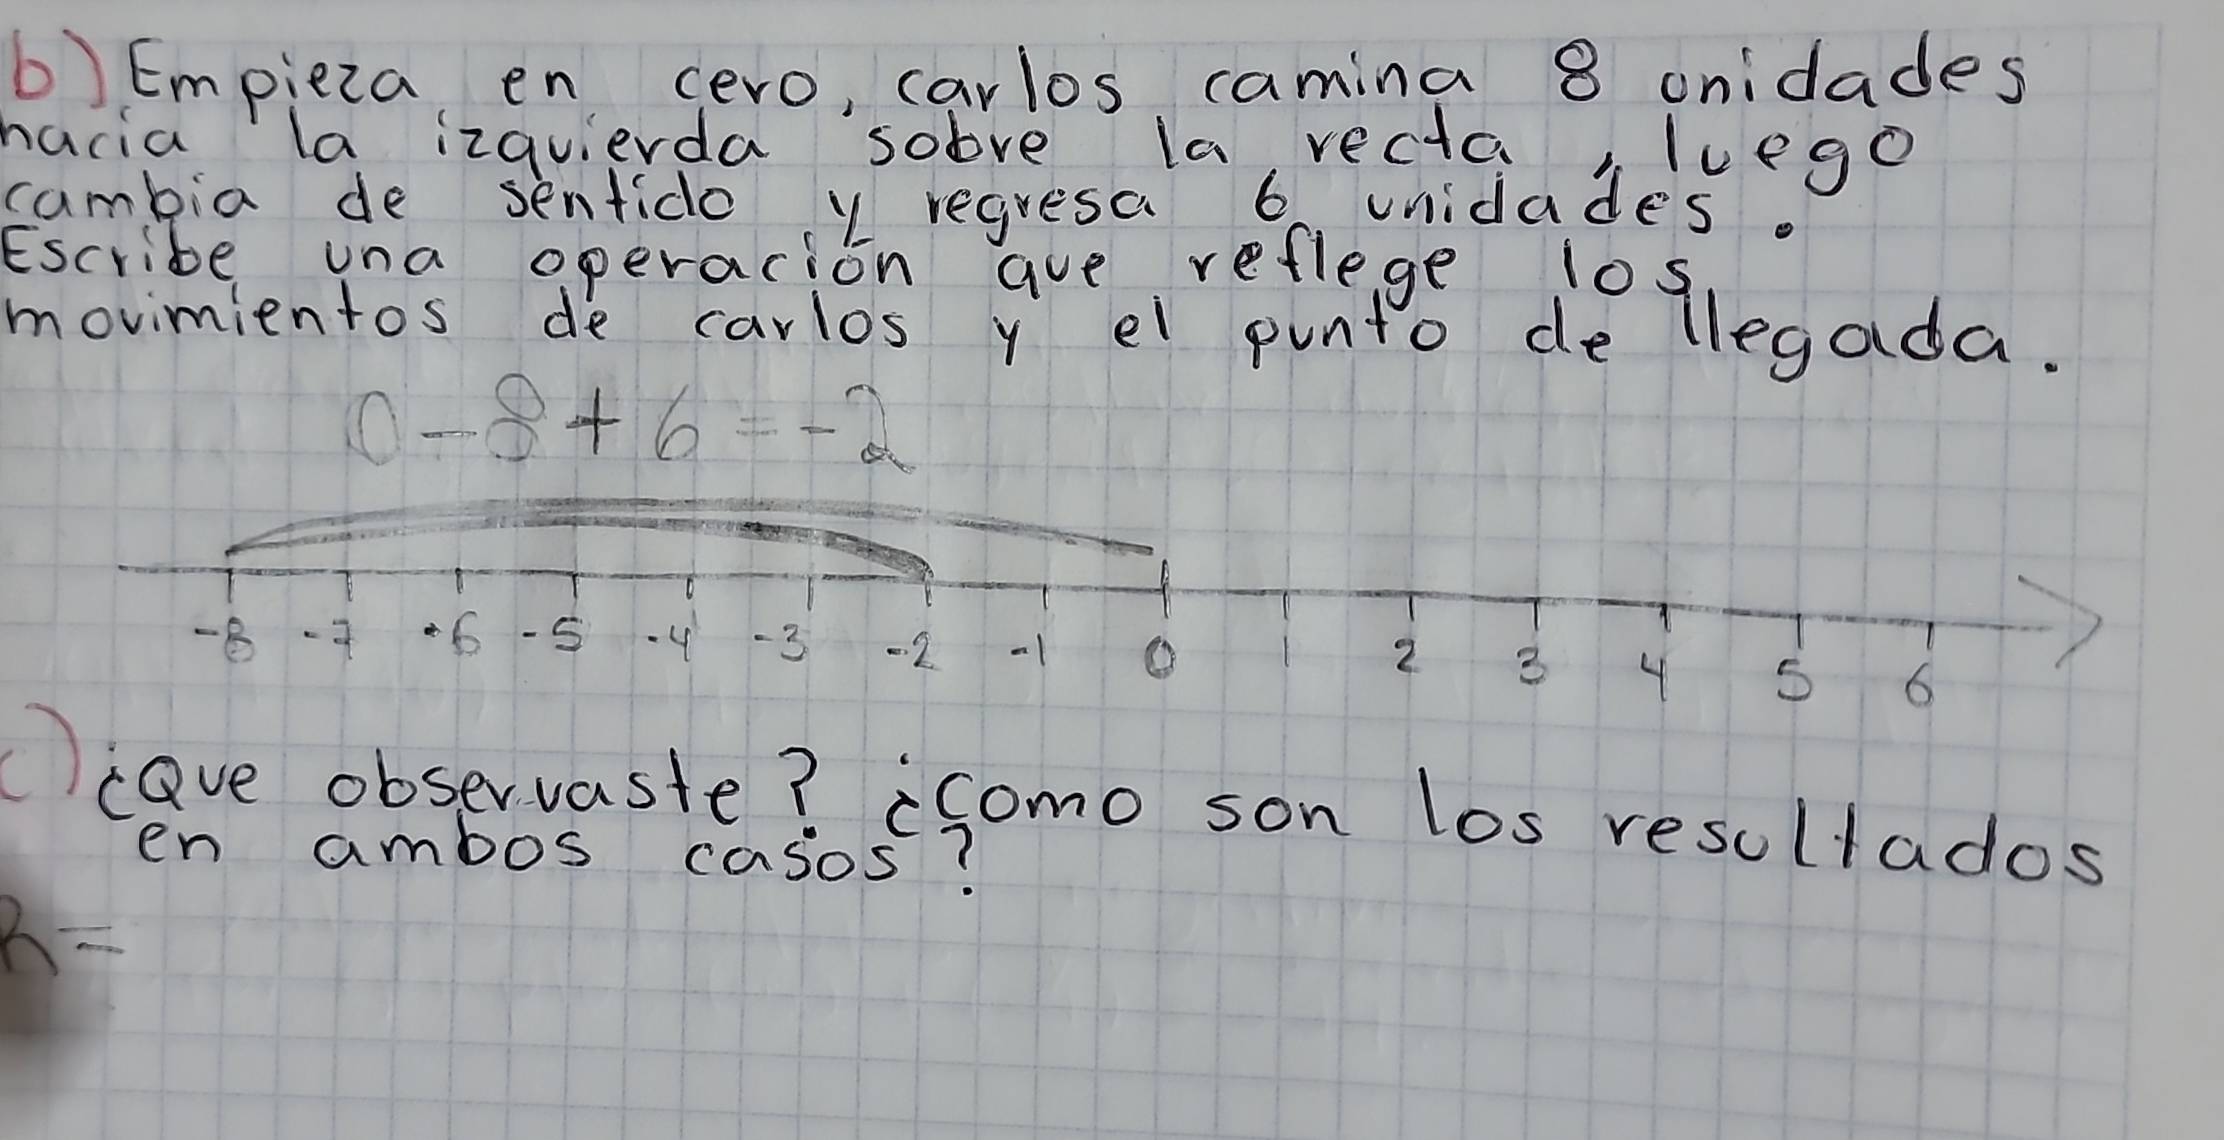 b) Empieza en cero, carlos camina 8 unidades
hacia la izquierda sobre la recta, luego
cambia de sentido y regresa 6 unidades.
Escribe una operación que reflege los
movimientos de carlos y el punto de llegada.
0-8+6=-2
-8 -7 -6 -5 -4 -3 -2 -1 0 1 2 3 4 5 6
c) ¿Que observaste? ¿Como son los resultados
en ambos casos?
R=